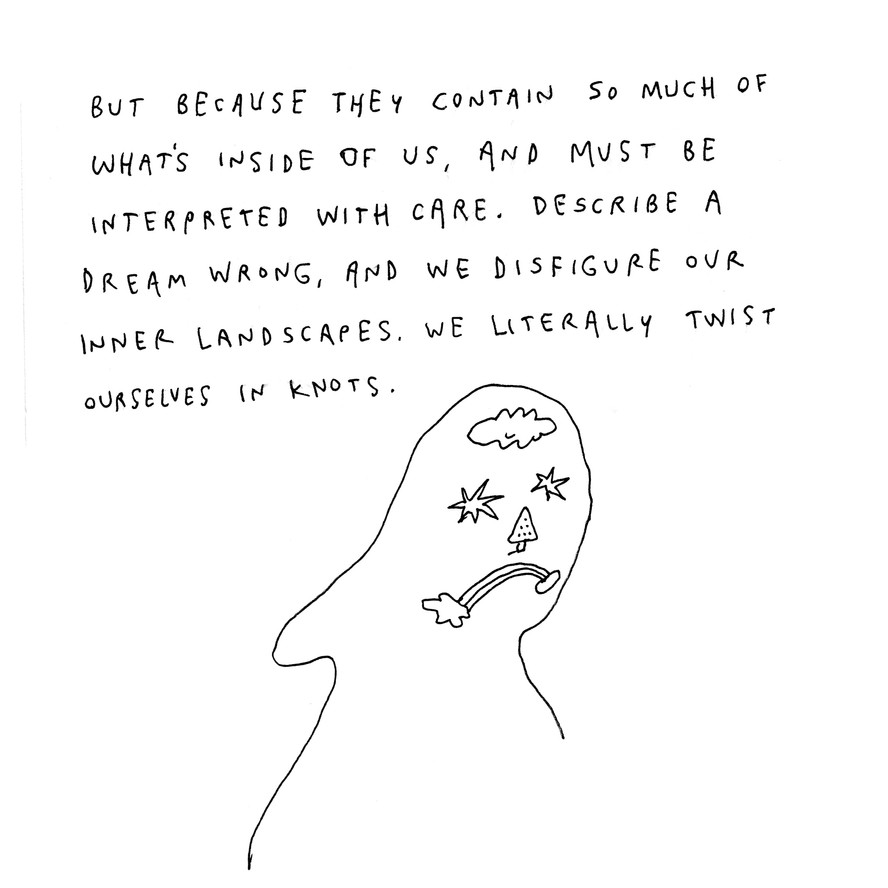 BUT BECAUSE THEY CONTAIN SO MUCH OF
WHAT'S INSIDE OF US, AND MUST BE
INTERPRETED WITH CARE. DESCRIBE A
DREAM WRONG, AND WE DISFIGURE OUR
INNER LANDSCAPES. WE LITERALLY TWIST
OURSELVES IN KNOTS.